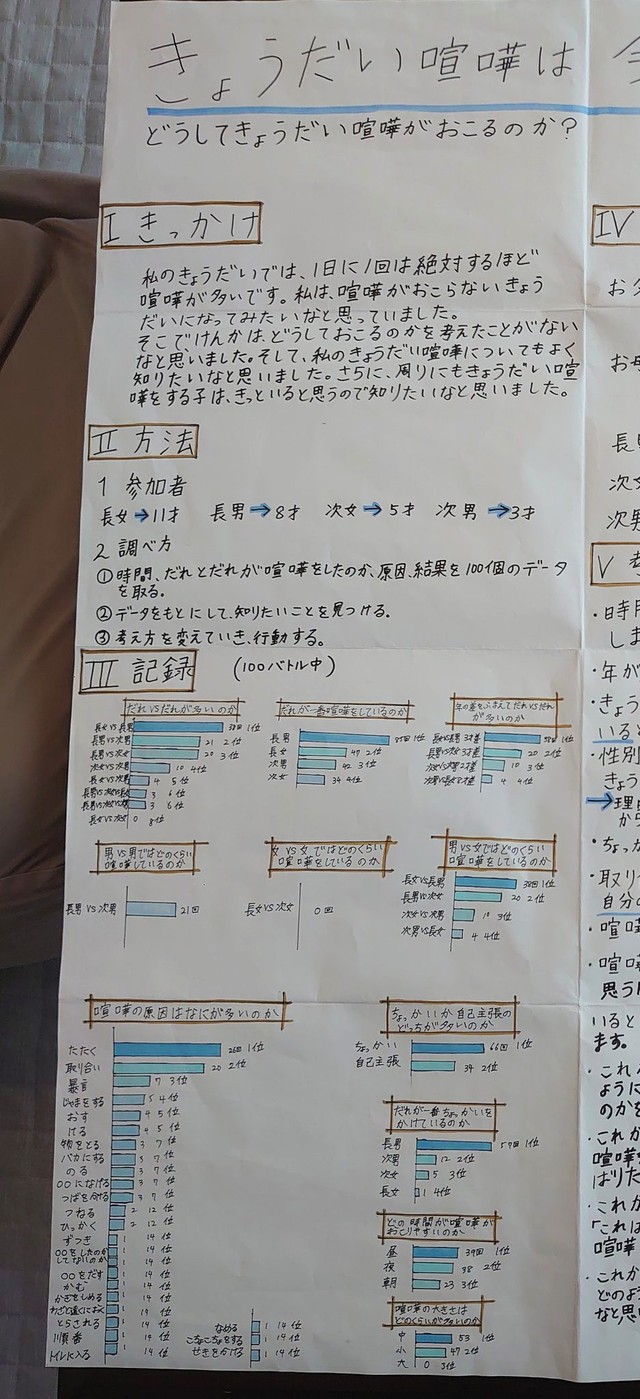 きょうだい喧嘩は
どうしてきょうだい喧嘩がおこるのか?
I きっかけ
私のきょうだいでは、1日に1回は絶対するほど
喧嘩が多いです。私は、喧嘩がおこらないきょう
だいになってみたいなと思っていました。
そこでけんかは、どうしておこるのかを考えたことがない
なと思いました。そして、私のきょうだい喧嘩についてもよく
知りたいなと思いました。さらに、周りにもきょうだい喧
嘩をする子は、きっといると思うので知りたいなと思いました。
II 方法
1 参加者
長女→11才 長男→8才 次女→5才 次男→3才
2 調べ方
①時間、だれとだれが喧嘩をしたのか、原因、結果を100個のデータ
を取る。
②データをもとにして、知りたいことを見つける。
③考え方を変えていき、行動する。
III 記録 (100バトル中)
だれVSだれが多いのか
長女VS長男 38回 1位
長男VS次男 21 2位
長男VS次女 20 3位
次女VS次男 10 4位
長女VS次男 4 5位
3 6位
3 6位
長女VS次女 0 8位
だれが一番喧嘩をしているのか
長男 85回 1位
長女 47 2位
次男 42 3位
次女 34 4位
年の差をふまえてだれVSだれ
が多いのか
長女VS長男 3才差 58回 1位
20 2位
10 3位
4 4位
男VS男ではどのくらい
喧嘩しているのか
長男VS次男 21回
女VS女ではどのくらい
喧嘩をしているのか
長女VS次女 0回
男VS女ではどのくらい
喧嘩をしているのか
長女VS長男 38回 1位
長男VS次女 20 2位
次女VS次男 10 3位
次男VS長女 4 4位
喧嘩の原因はなにが多いのか
たたく 26回 1位
取り合い 20 2位
暴言 7 3位
じゃまをする 5 4位
おす 4 5位
ける 4 5位
物をとる 3 7位
バカにする 3 7位
のる 3 7位
○○になげる 3 7位
つばをかける 3 7位
つねる 2 12位
ひっかく 2 12位
ずつき 1 14位
○○をしたのか
してないのか 1 14位
○○をだす 1 14位
かむ 1 14位
かぎをしめる 1 14位
わざと遠くにおく 1 14位
とらされる 1 14位
順番 1 14位
トイレに入る 1 14位
なめる 1 14位
こちょこちょをする 1 14位
せきをかける 1 14位
ちょっかいか自己主張の
どっちが多いのか
ちょっかい 66回 1位
自己主張 34 2位
だれが一番ちょっかいを
かけているのか
長男 57回 1位
次男 12 2位
次女 5 3位
長女 1 4位
どの時間が喧嘩が
おこりやすいのか
昼 39回 1位
夜 38 2位
朝 23 3位
喧嘩の大きさは
どのくらいが多いのか
中 53 1位
小 47 2位
大 0 3位
IV
お
お母
長
次女
次男
V
・時
しま
・年が
・きょう
いると
・性別
きょう
→理由
から
・ちょっか
・取り
自分の
・喧嘩
・喧嘩
思う
いると
ます。
・これ
ように
のかを
・これが
喧嘩
ばりた
・これか
「これは
喧嘩
・これか
どのよう
なと思い